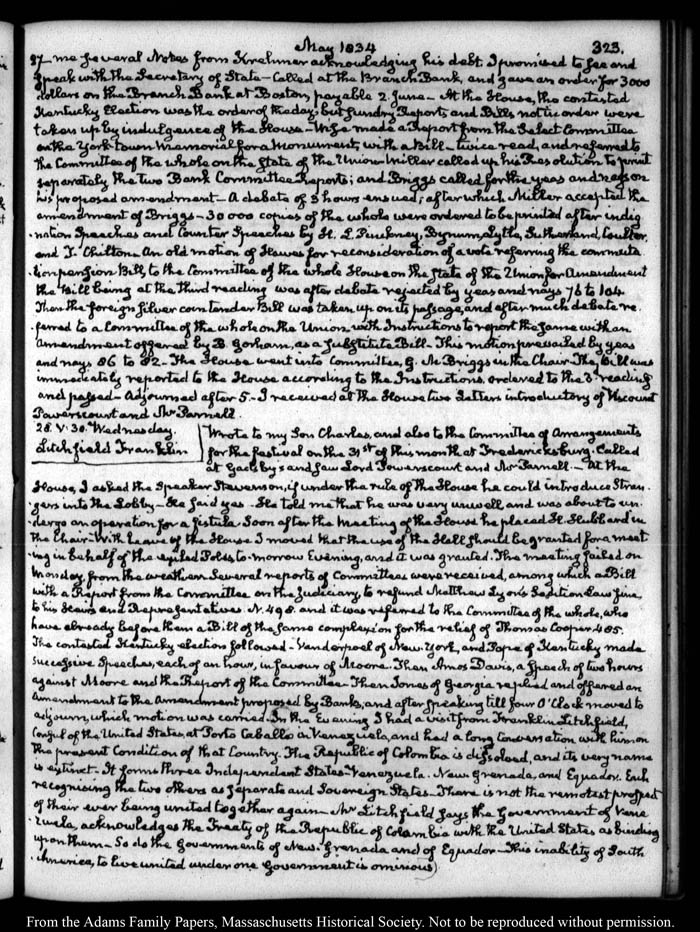 May 1834
323.
me Several Notes from Krehmer acknowledging his debt. I promised to see and
speak with the Secretary of State – Called at the Branch Bank, and gave an order for 3000
dollars on the Branch Bank at Boston, payable 2. June – At the House, the contested
Kentucky Election was the order of the day; but sundry Reports and Bills not in order were
taken up by indulgence of the House – Wise made a Report from the Select Committee
on the York-town Memorial for a Monument, with a Bill – twice read, and referred to
the Committee of the whole on the State of the Union – Miller called up his Resolution to print
separately the two Bank Committee Reports; and Briggs called for the yeas and nays on
his proposed amendment – A debate of 3 hours ensued; after which Miller accepted the
amendment of Briggs – 30000 copies of the whole were ordered to be printed after indig
nation Speeches and Counter Speeches by H. L. Pinckney, Bynum, Lytle, Sutherland, Coulter,
and T. Chilton. An old motion of Hawes for reconsideration of a vote referring the commuta
tion pension Bill, to the Committee of the whole House on the State of the Union for Amendment
the Bill being at the third reading was after debate rejected by yeas and nays 76 to 104.
Then the foreign Silver coin tender Bill was taken up on its passage, and after much debate re
ferred to a Committee of the whole on the Union with Instructions to report the same with an
Amendment offered by B. Gorham, as a substitute Bill – This motion prevailed by yeas
and nays 86 to 82 – The House went into Committee, G. N. Briggs in the Chair – The Bill was
immediately reported to the House according to the Instructions, ordered to the 3d reading
and passed – Adjourned after 5 – I received at the House two Letters introductory of Viscount
Powerscourt and Mr Parnell.
28. V: 30. Wednesday.
Litchfield Franklin
Wrote to my Son Charles, and also to the Committee of Arrangements
for the festival on the 31st of this month at Fredericksburg. Called
at Gadsby's and saw Lord Powerscourt and Mr Parnell – At the
House, I asked the Speaker Stevenson, if under the rule of the House he could introduce Stran
gers into the Lobby – He said yes – He told me that he was very unwell and was about to un
dergo an operation for a fistula. Soon after the meeting of the House he placed H. Hubbard in
the Chair – With leave of the House I moved that the use of the Hall should be granted for a meet
ing in behalf of the exiled Poles to-morrow Evening, and it was granted. The meeting failed on
Monday from the weather. Several reports of Committees were received, among which a Bill
with a Report from the Committee on the Judiciary, to refund Matthew Lyon's Sedition Law fine,
to his Heirs and Representatives N. 498. and it was referred to the Committee of the whole, who
have already before them a Bill of the same complexion for the relief of Thomas Cooper 405.
The contested Kentucky election followed – Vanderpoel of New-York, and Pope of Kentucky made
successive Speeches, each of an hour, in favour of Moore. Then Amos Davis, a speech of two hours
against Moore and the Report of the Committee – Then Jones of Georgia replied and offered an
Amendment to the Amendment proposed by Banks, and after speaking till four O'Clock moved to
adjourn, which motion was carried. In the Evening I had a visit from Franklin Litchfield,
Consul of the United States, at Porto Caballo in Venezuela, and had a long conversation with him on
the present Condition of that Country. The Republic of Colombia is dissolved, and its very name
is extinct – It forms three Independent States – Venezuela. New Grenada, and Equador. Each
recognising the two others as separate and Sovereign States – There is not the remotest prospect
of their ever being united together again – Mr Litchfield says the Government of Vene
zuela, acknowledges the Treaty of the Republic of Colombia with the United States as binding
upon them – So do the Governments of New-Grenada and of Equador – This inability of South
America, to live united under one Government is ominous
From the Adams Family Papers, Massachusetts Historical Society. Not to be reproduced without permission.